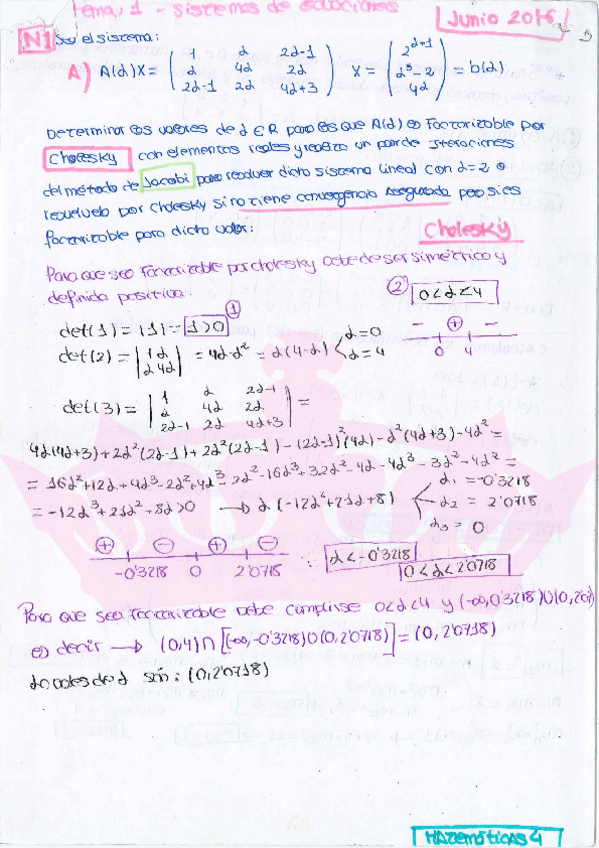 Tema: 1 - sistemas de ecuaciones
Junio 2016
N1 Sea el sistema:
A) A(α)X = ( 1 α 2α-1 / α 4α 2α / 2α-1 2α 4α+3 ) X = ( 2^(α+1) / α^3-2 / 4α ) = b(α)
Determinar los valores de α ∈ R para los que A(α) es factorizable por
Cholesky con elementos reales y realiza un par de iteraciones
del método de Jacobi para resolver dicho sistema lineal con α=2 o
resuelvelo por Cholesky si no tiene convergencia asegurada pero si es
factorizable para dicho valor:
Cholesky
Para que sea factorizable por cholesky debe de ser simétrica y
definida positiva:
② 0<α<4
det(1) = |1| = 1>0 ①
det(2) = |1 α / α 4α| = 4α-α² = α(4-α) α=0 α=4
- + -
0 4
det(3) = | 1 α 2α-1 / α 4α 2α / 2α-1 2α 4α+3 | =
4α(4α+3) + 2α²(2α-1) + 2α²(2α-1) - (2α-1)²(4α) - α²(4α+3) - 4α² =
= 16α²+12α+4α³-2α²+4α³-2α²-16α³+32α²-4α-4α³-3α²-4α² =
= -12α³+21α²+8α>0 → α(-12α²+21α+8) α₁ = -0'3218
α₂ = 2'0718
α₃ = 0
+ - + -
-0'3218 0 2'0718
: α<-0'3218
0<α<2'0718
Para que sea factorizable debe cumplirse 0<α<4 y (-∞,0'3218)U(0,2'07)
es decir → (0,4)∩[(-∞,-0'3218)U(0,2'0718)] = (0,2'0718)
Valores de α són: (0,2'0718)
Matemáticas 4